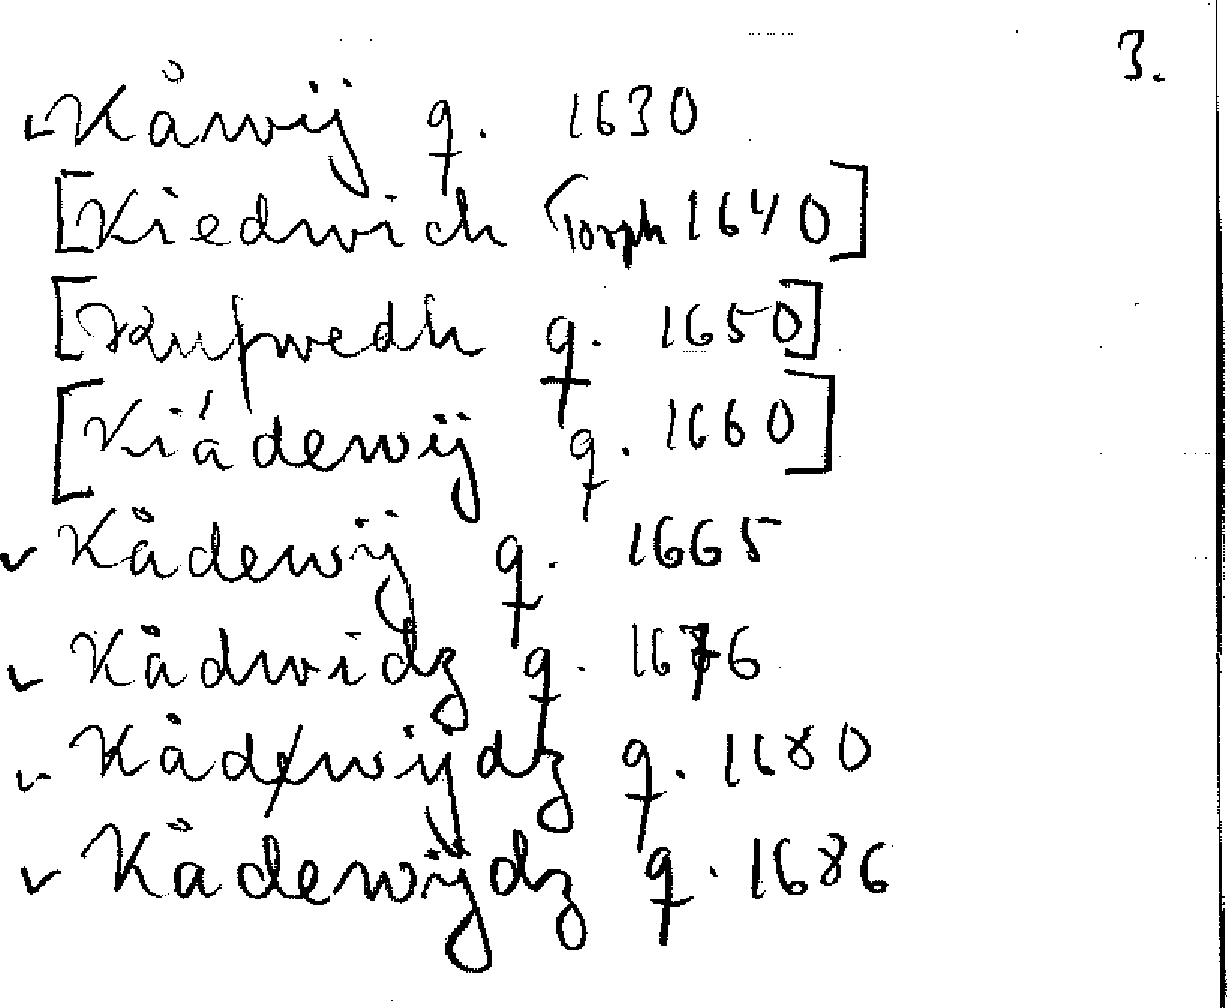 3.
✓ Kåwij q. 1630
[Kiedwich Torph 1640]
[Kuſwedh q. 1650]
[Kiádewij q. 1660]
✓ Kådewij q. 1665
✓ Kådwidz q. 1676
✓ Kådwijdz q. 1680
✓ Kådewijdz q. 1686